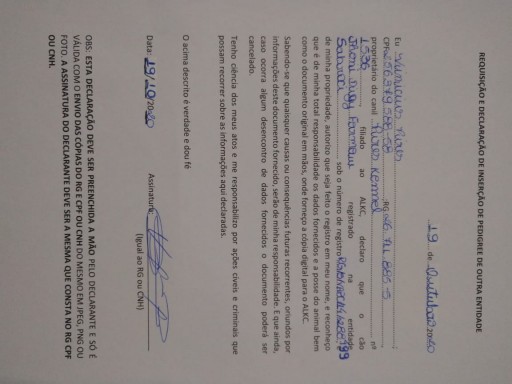 REQUISIÇÃO E DECLARAÇÃO DE INSERÇÃO DE PEDIGREE DE OUTRA ENTIDADE
19 de Outubro 2020
Eu
CPF RG
proprietário do canil Kennel nº
1596 filiado ao ALKC, declaro que o cão
registrado na entidade
Sobraci sob o número de registro
de minha propriedade, autorizo que seja feito o registro em meu nome, e reconheço
que é de minha total responsabilidade os dados fornecidos e a posse do animal bem
como o documento original em mãos, onde forneço a cópia digital para o ALKC.
Sabendo-se que quaisquer causas ou consequências futuras recorrentes, oriundos por
informações deste documento fornecido, serão de minha responsabilidade. E que ainda,
caso ocorra algum desencontro de dados fornecidos o documento poderá ser
cancelado.
Tenho ciência dos meus atos e me responsabilizo por ações cíveis e criminais que
possam recorrer sobre as informações aqui declaradas.
O acima descrito é verdade e dou fé
Data: 19/10/2020 Assinatura:
(Igual ao RG ou CNH)
OBS: ESTA DECLARAÇÃO DEVE SER PREENCHIDA A MÃO PELO DECLARANTE E SÓ É
VÁLIDA COM O ENVIO DAS CÓPIAS DO RG E CPF OU CNH DO MESMO EM JPEG, PNG OU
FOTO. A ASSINATURA DO DECLARANTE DEVE SER A MESMA QUE CONSTA NO RG CPF
OU CNH.